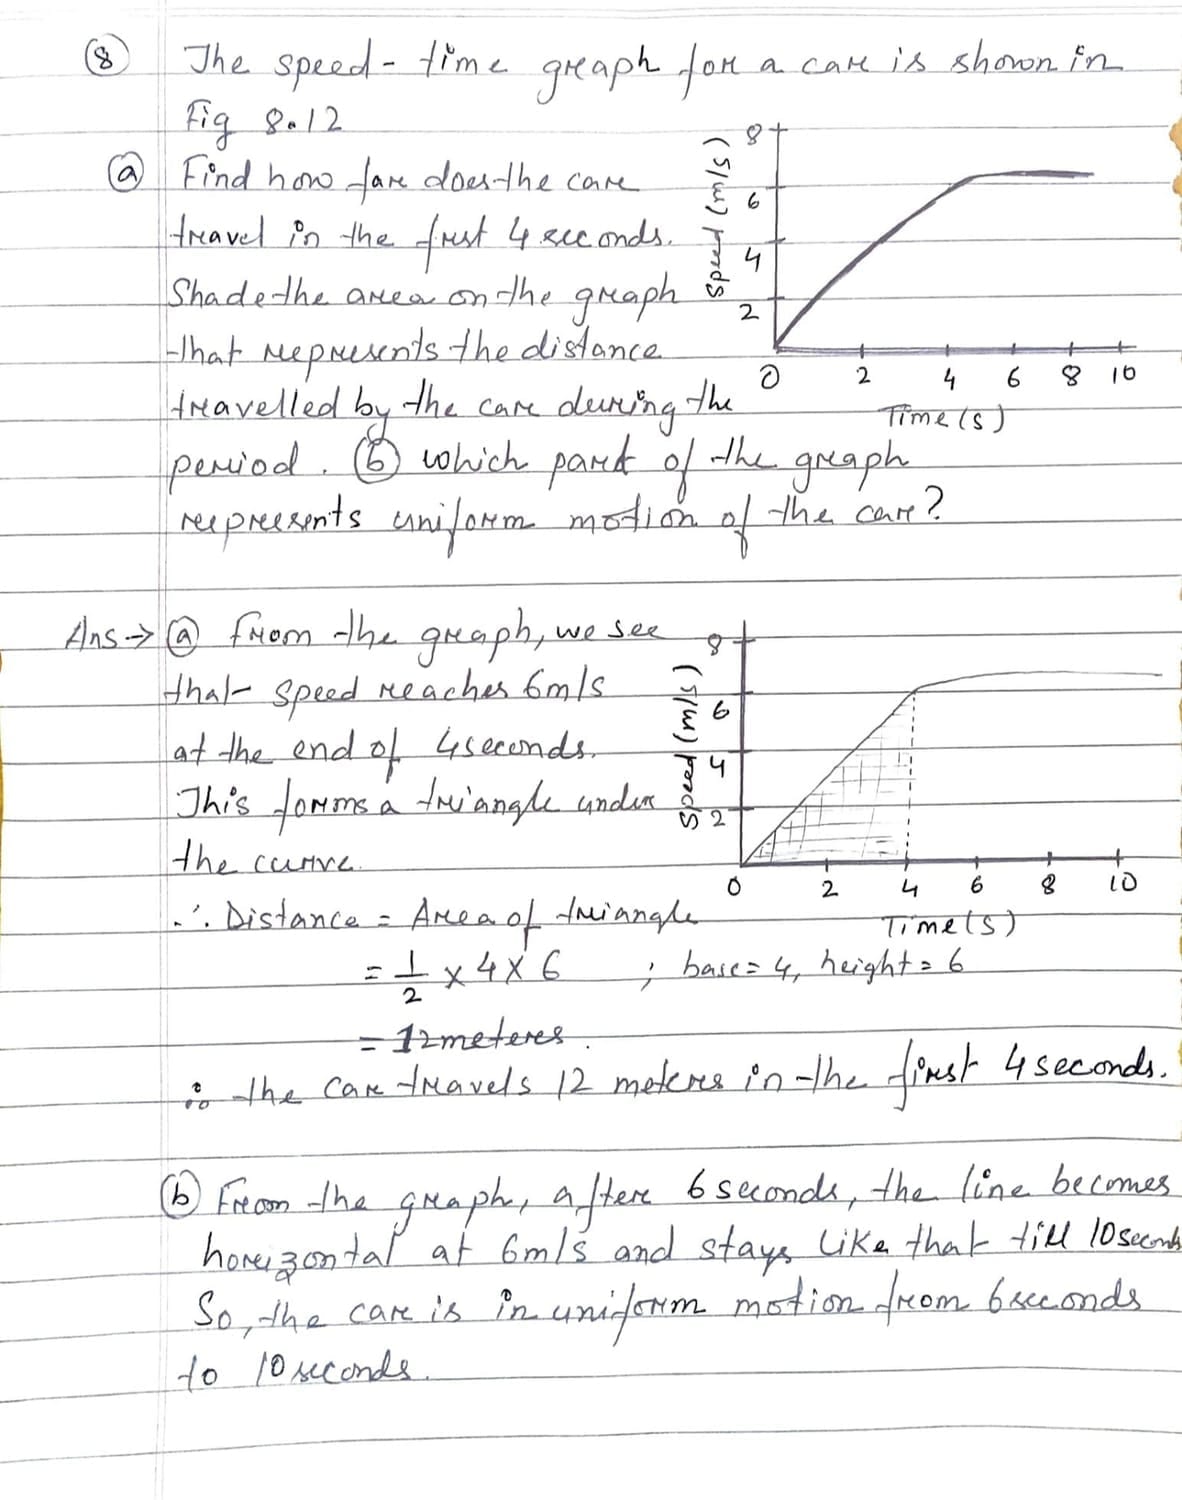 8 The speed-time graph for a car is shown in
Fig 8.12
a Find how far does the car
travel in the first 4 seconds.
Shade the area on the graph
that represents the distance
travelled by the car during the
period. b which part of the graph
represents uniform motion of the car?
Speed (m/s)
8
6
4
2
0 2 4 6 8 10
Time (s)
Ans→ a From the graph, we see
that speed reaches 6m/s
at the end of 4seconds.
This forms a triangle under
the curve.
Speed (m/s)
8
6
4
2
0 2 4 6 8 10
Time(s)
∴ Distance = Area of triangle
= 1/2 x 4 x 6 ; base= 4, height= 6
= 12meteres.
∴ the car travels 12 meteres in the first 4 seconds.
b From the graph, after 6 seconds, the line becomes
horizontal at 6m/s and stays like that till 10 seconds
So, the car is in uniform motion from 6 seconds
to 10 seconds.